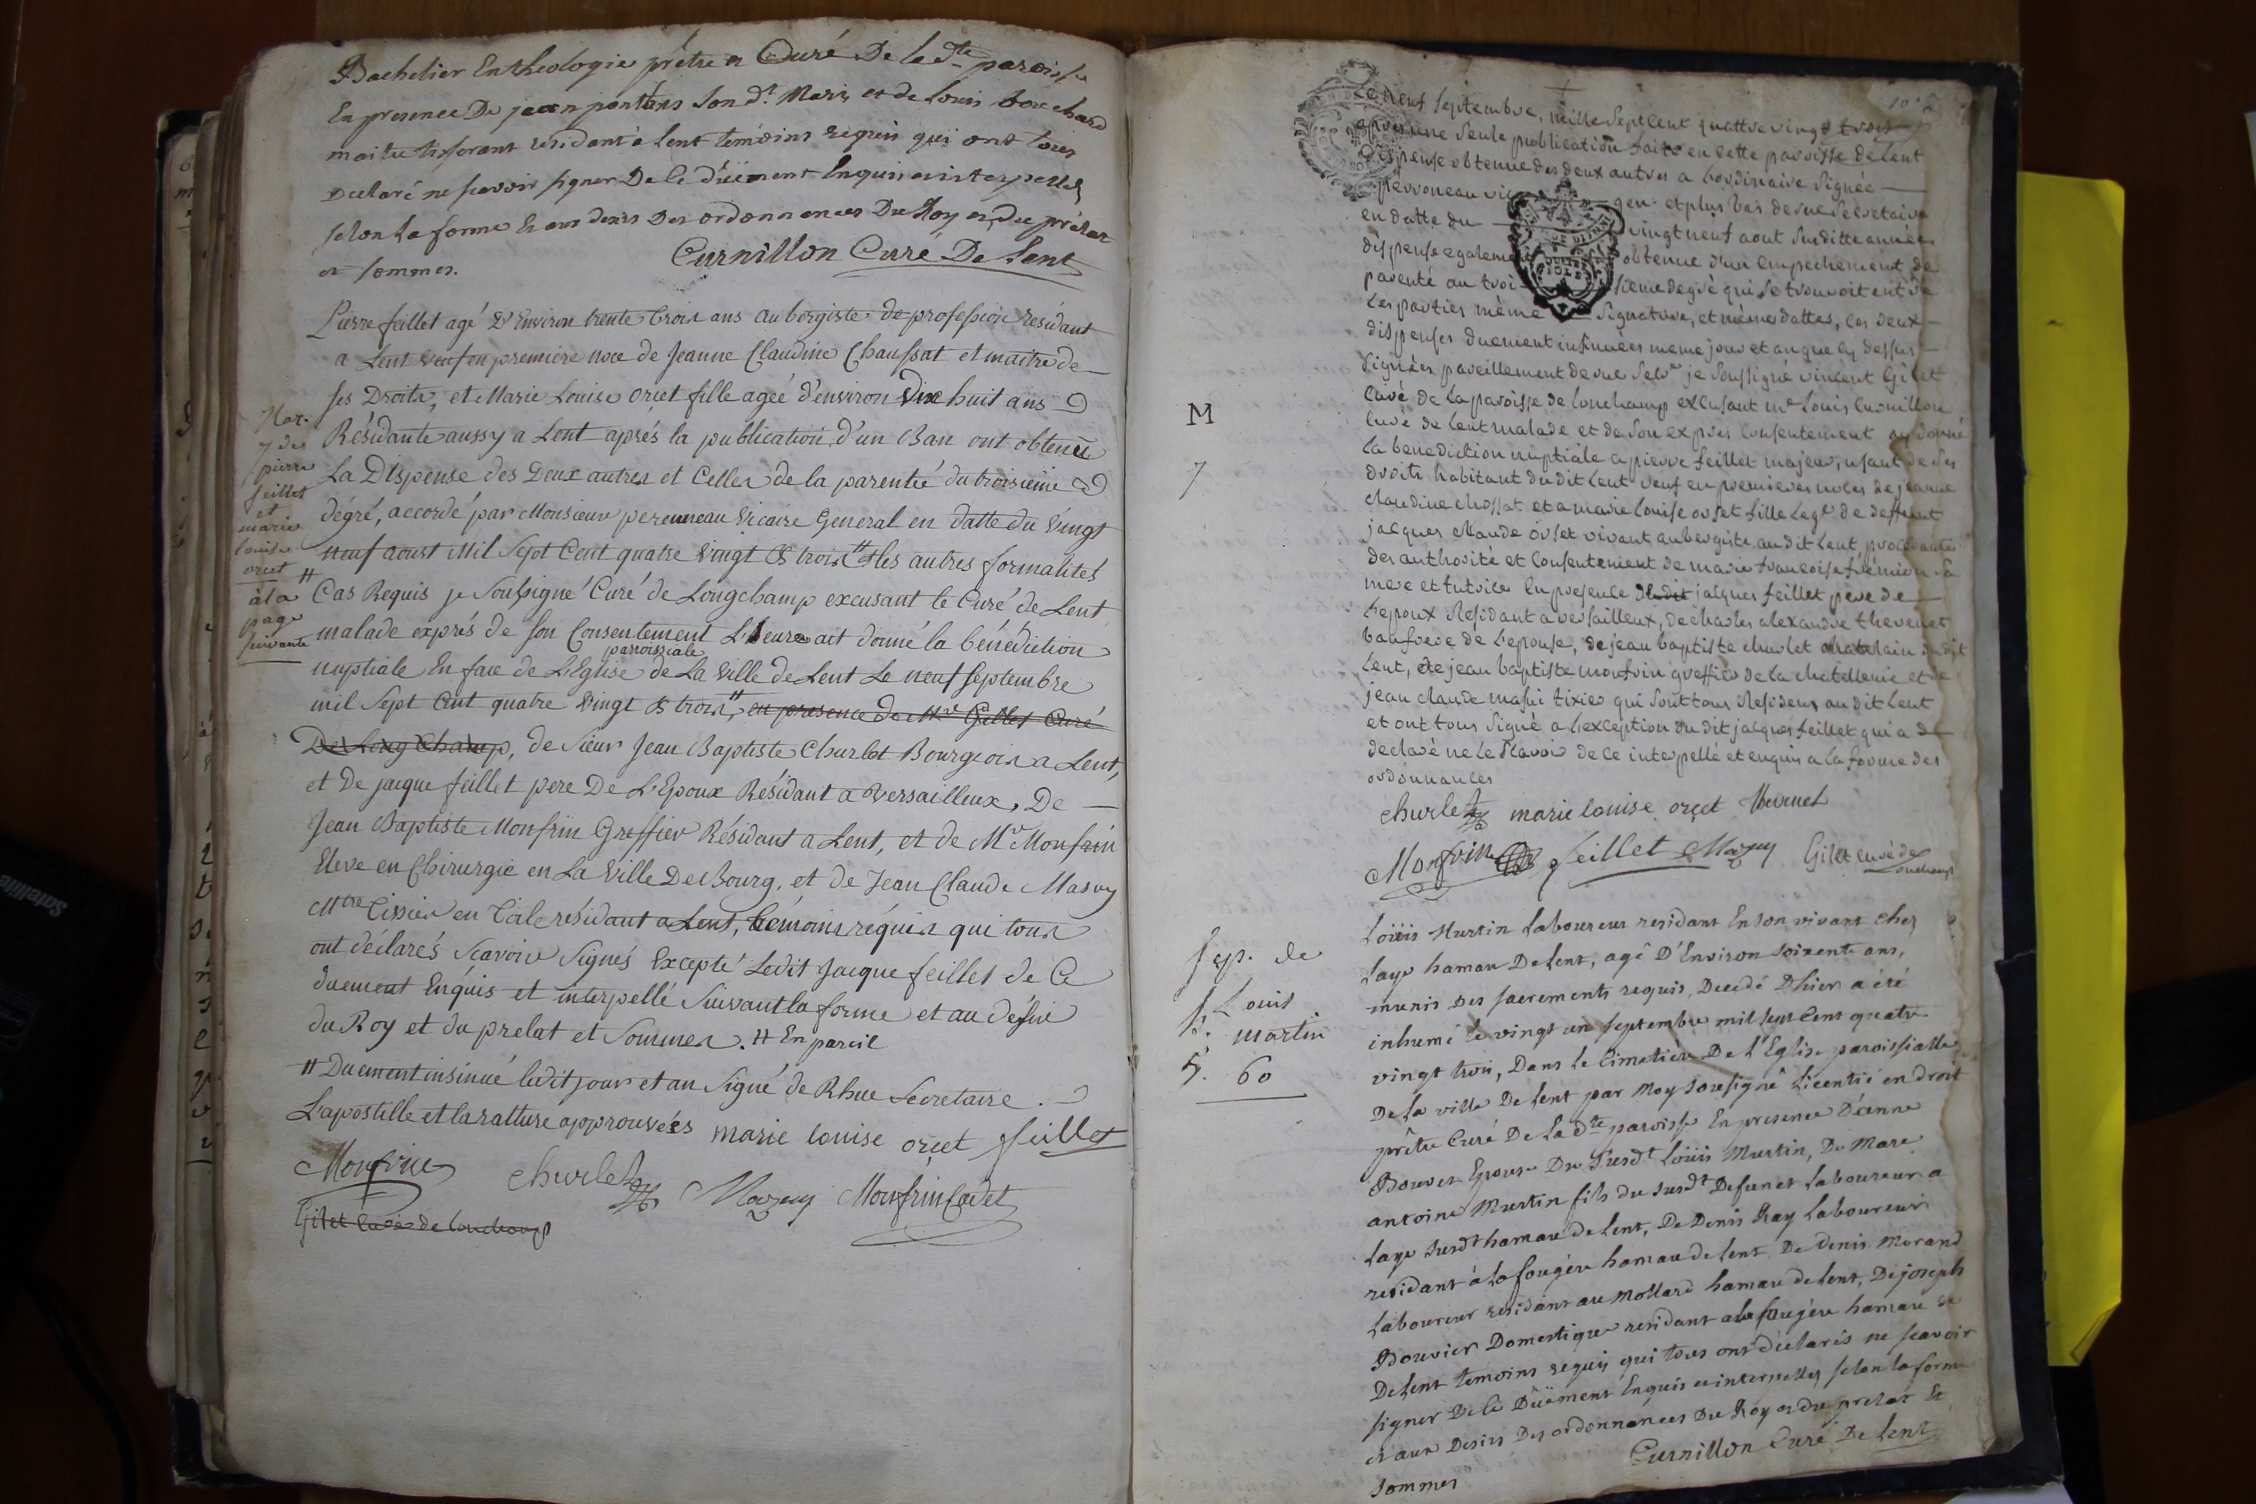 Bachelier En theologie prêtre et Curé De la dte paroisse
En presence De jean ponthus son dt Maris et de Louis bouchard
maitre tisserant residant à Lent temoins requis qui ont tous
Declaré ne scavoir signer De ce Düement Enquis et interpellés
selon la forme Et aux desirs Des ordonnances Du Roy et du prélat
et sommes. Curnillon Curé De Lent
Pierre feillet agé D'Environ trente trois ans aubergiste de profession résidant
a Lent veuf en premiere noce de Jeanne Claudine Chaussat et maitre de
ses Droits, et Marie Louise orcet fille agée d'environ Dix huit ans
Résidante aussy a Lent après la publication d'un Ban ont obtenu
La Dispense des Deux autres et Celles de la parentée du troisieme
dégré, accordé par Monsieur perenneau vicaire General en datte du vingt
neuf aoust Mil Sept Cent quatre vingt & trois # les autres formalités
Cas Requis je Soussigné Curé de Longchamp excusant le Curé de Lent
malade exprés de son Consentement L'heure ait donné la bénédiction
paroissiale
nuptiale En face de L'Eglise de La ville de Lent Le neuf septembre
mil Sept cent quatre vingt & trois #, en presence de Mr Gillet Curé
De Long Champ, de Sieur Jean Baptiste Churlet Bourgeois a Lent,
et De jacque feillet pere De L'Epoux Résidant a Versailleux, De
Jean Baptiste Monfrin Greffier Résidant a Lent, et de Mr Monfrin
Eleve en Chirurgie en La ville De Bourg, et de Jean Claude Masuy
Mtre Tissier en Toile résidant a Lent, témoins réquis qui tous
ont déclarés Scavoir Signés Excepté Ledit Jacque feillet de Ce
duement Enquis et interpellé Suivant la forme et au désir
du Roy et du prelat et Sommes. # En pareil
# Duement insinué ledit jour et an Signé de Rhue Secretaire.
L'apostille et la ratture approuvées marie louise orcet feillet
Monfrin churlet Mazuy Monfrin Cadet
Gilet curé de Lonchamp
Mar.
7 de
pierre
feillet
et
marie
louise
orcet
#
à la
page
suivante
Le neuf septembre, mille sept cent quattre vingt trois
apres une seule publication faite en cette paroisse de Lent
Dispense obtenue des deux autres a l'ordinaire signée
perroneau vic gen. et plus bas de rue secretaire
en datte du vingt neuf aout susditte année
dispense egalement obtenue d'un empechement de
parenté au troisieme degré qui se trouvoit entre
les parties même signature, et meme dattes, les deux
dispenses duement insinuées meme jour et an que cy dessus
signées pareillement de rue secre je soussigné vincent Gilet
curé de la paroisse de lonchamp excusant mr Louis curnillon
curé de lent malade et de son exprès consentement ay donné
la benediction nuptiale a pierre feillet majeur, usant de ses
droits habitant du dit Lent veuf en premieres noces de jeanne
claudine chossat et a marie louise orset fille legt de deffunt
jacques claude orset vivant aubergiste au dit Lent, procedante
des authorité et consentement de marie francoise fremion sa
mere et tutrice en presence dudit jacques feillet père de
l'epoux residant a versailleux, de charles alexandre thevenet
baufrere de l'epouse, de jean baptiste churlet chatelain du dit
Lent, de jean baptiste monfrin greffier de la chatellenie et de
jean claude masui tixier qui sont tous residens au dit Lent
et ont tous signé a l'exception du dit jacques feillet qui a
declaré ne le scavoir de ce interpellé et enquis a la forme des
ordonnances
churlet marie louise orcet thevenet
Monfrin feillet Mazuy Gilet curé de
Lonchamp
M
7
Loüis Martin Laboureur residant En son vivant chez
Laye hamau De Lent, agé D'Environ soixente ans,
munis Des sacrements requis, Decedé D'hier a été
inhumé le vingt un septembre mil sept Cent quatre
vingt trois, Dans le Cimetiere De L'Eglise paroissialle
De la ville De Lent par Moy soussigné Licentié en Droit
prêtre Curé De la dte paroisse En presence D'anne
Bouvet Epouse Du susdt Loüis Martin, De Marc
antoine Martin fils du susdt Defunct Laboureur a
Laye susdt hamau de Lent, De Denis Ray Laboureur
residant à la fougere hamau de Lent, De Denis Morand
Laboureur residant au Mollard hamau de Lent, De joseph
Bouvier Domestique residant a la fougere hamau de
De Lent temoins requis qui tous ont déclarés ne scavoir
signer De ce Düement Enquis et interpellés selon la forme
et aux Desirs Des ordonnances Du Roy et du prelat Et
sommes Curnillon Curé De Lent
sep. de
Louis
martin
60